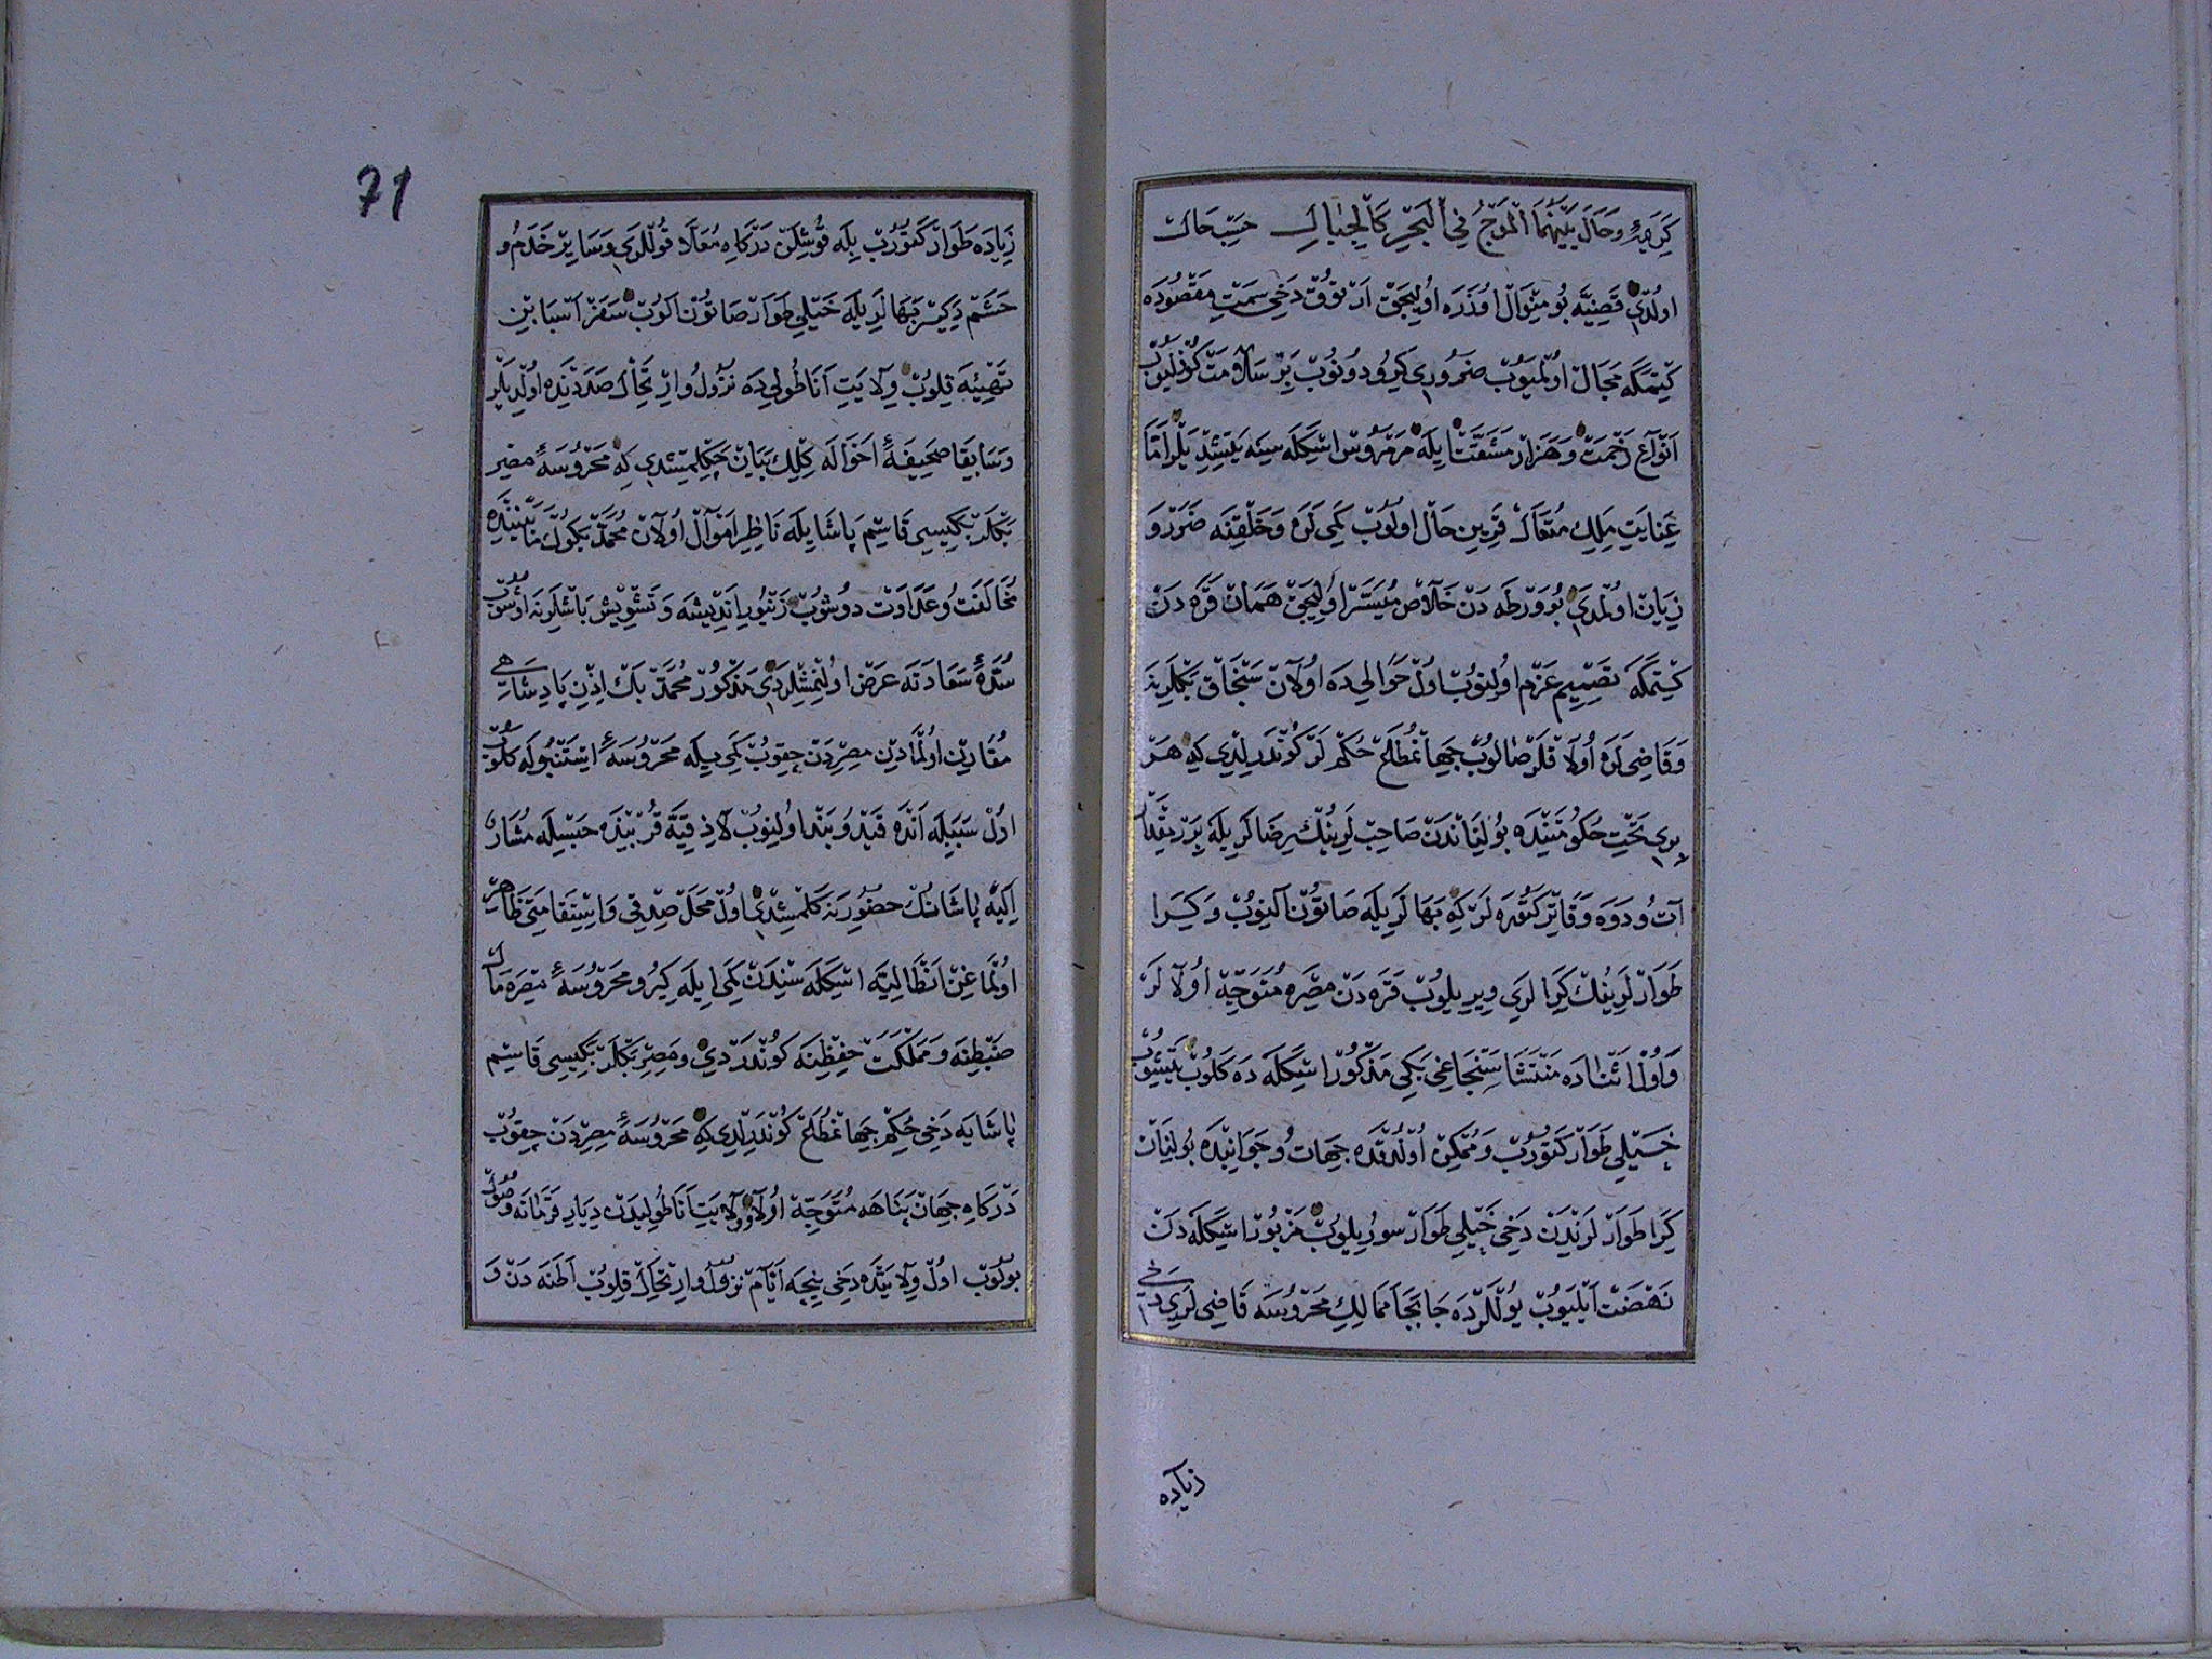 كريمهٔ وحال بينهما الموج في البحر كالجبال حسب حال
اولدى قضيه بو منوال اوزره اوليجق ارتوق دخى سمت مقصوده
كتمكه مجال اولميوب ضرورى كيرو دونوب بر سلامت كوزليوب
انواع زحمت و هزار مشقت ايله مرمروس اسكله سينه يتشديلر اما
عنايت ملك متعال قرين حال اولوب كمى لره و خلقنه ضرر و
زيان اولمدى بو ورطه دن خلاص ميسر اوليجق همان قره دن
كتمكه تصميم عزم اولنوب اول حوالى ده اولان سنجاق بكلرينه
و قاضى لره اولاقلر صالوب جهانمطاع حكملر كوندرلدى كه هر
برى تحت حكومتنده بولنانلردن صاحب لرينك رضالريله برر مقدار
آت و دوه و قاتر كتوره لر كه بهالريله صاتون آلنوب و كرا
طوارلرينك كرالرى ويريلوب قره دن مصره متوجه اولالر
و اول اثناده منتشا سنجاغى بكى مذكور اسكله ده كلوب يتشوب
خيلى طوار كتوروب و ممكن اولدقده جهات و جوانبده بولنان
كرا طوارلرندن دخى خيلى طوار سوريلوب مزبور اسكله دن
نهضت ايليوب يوللرده جابجا ممالك محروسه قاضى لرى دخى
زياده
71
زياده طوار كتوروب بيله قوشلن دركاه معلا قوللرى و ساير خدم و
حشم دكر بهالريله خيلى طوار صاتون الوب سفر اسبابين
تهيئه قلوب ولايت اناطوليده نزول و ارتحال صددنده اولديلر
و سابقا صحيفهٔ احواله كلك بيان چكلمشدى كه محروسهٔ مصر
بكلربكيسى قاسم پاشا ايله ناظر اموال اولان محمد بكوك مابيننده
مخالفت و عداوت دوشوب زنبور انديشه و تشويش باشلرينه اوشوب
سدهٔ سعادته عرض اولنمشلردى مذكور محمد بك اذن پادشاهى
مقارن اولمادين مصردن چقوب كمى بيله محروسهٔ استنبوله كلوب
اول سببيله انده قيد و بند اولنوب لاذقيه قربنده حبسيله مشار
اليه پاشانك حضورينه كلمشدى اول محل صدق و استقامتى ظاهر
اولماغن انطاليه اسكله سندن كمى ايله كيرو محروسهٔ مصره مال
ضبطنه و مملكت حفظنه كوندردى و مصر بكلربكيسى قاسم
پاشايه دخى حكم جهانمطاع كوندرلدى كه محروسهٔ مصردن چقوب
دركاه جهان پناهه متوجه اولا و ولايت اناطوليدن ديار قرمانه وصول
بولوب اول ولايتده دخى نيجه ايام نزول و ارتحال قلوب اطنه دن و